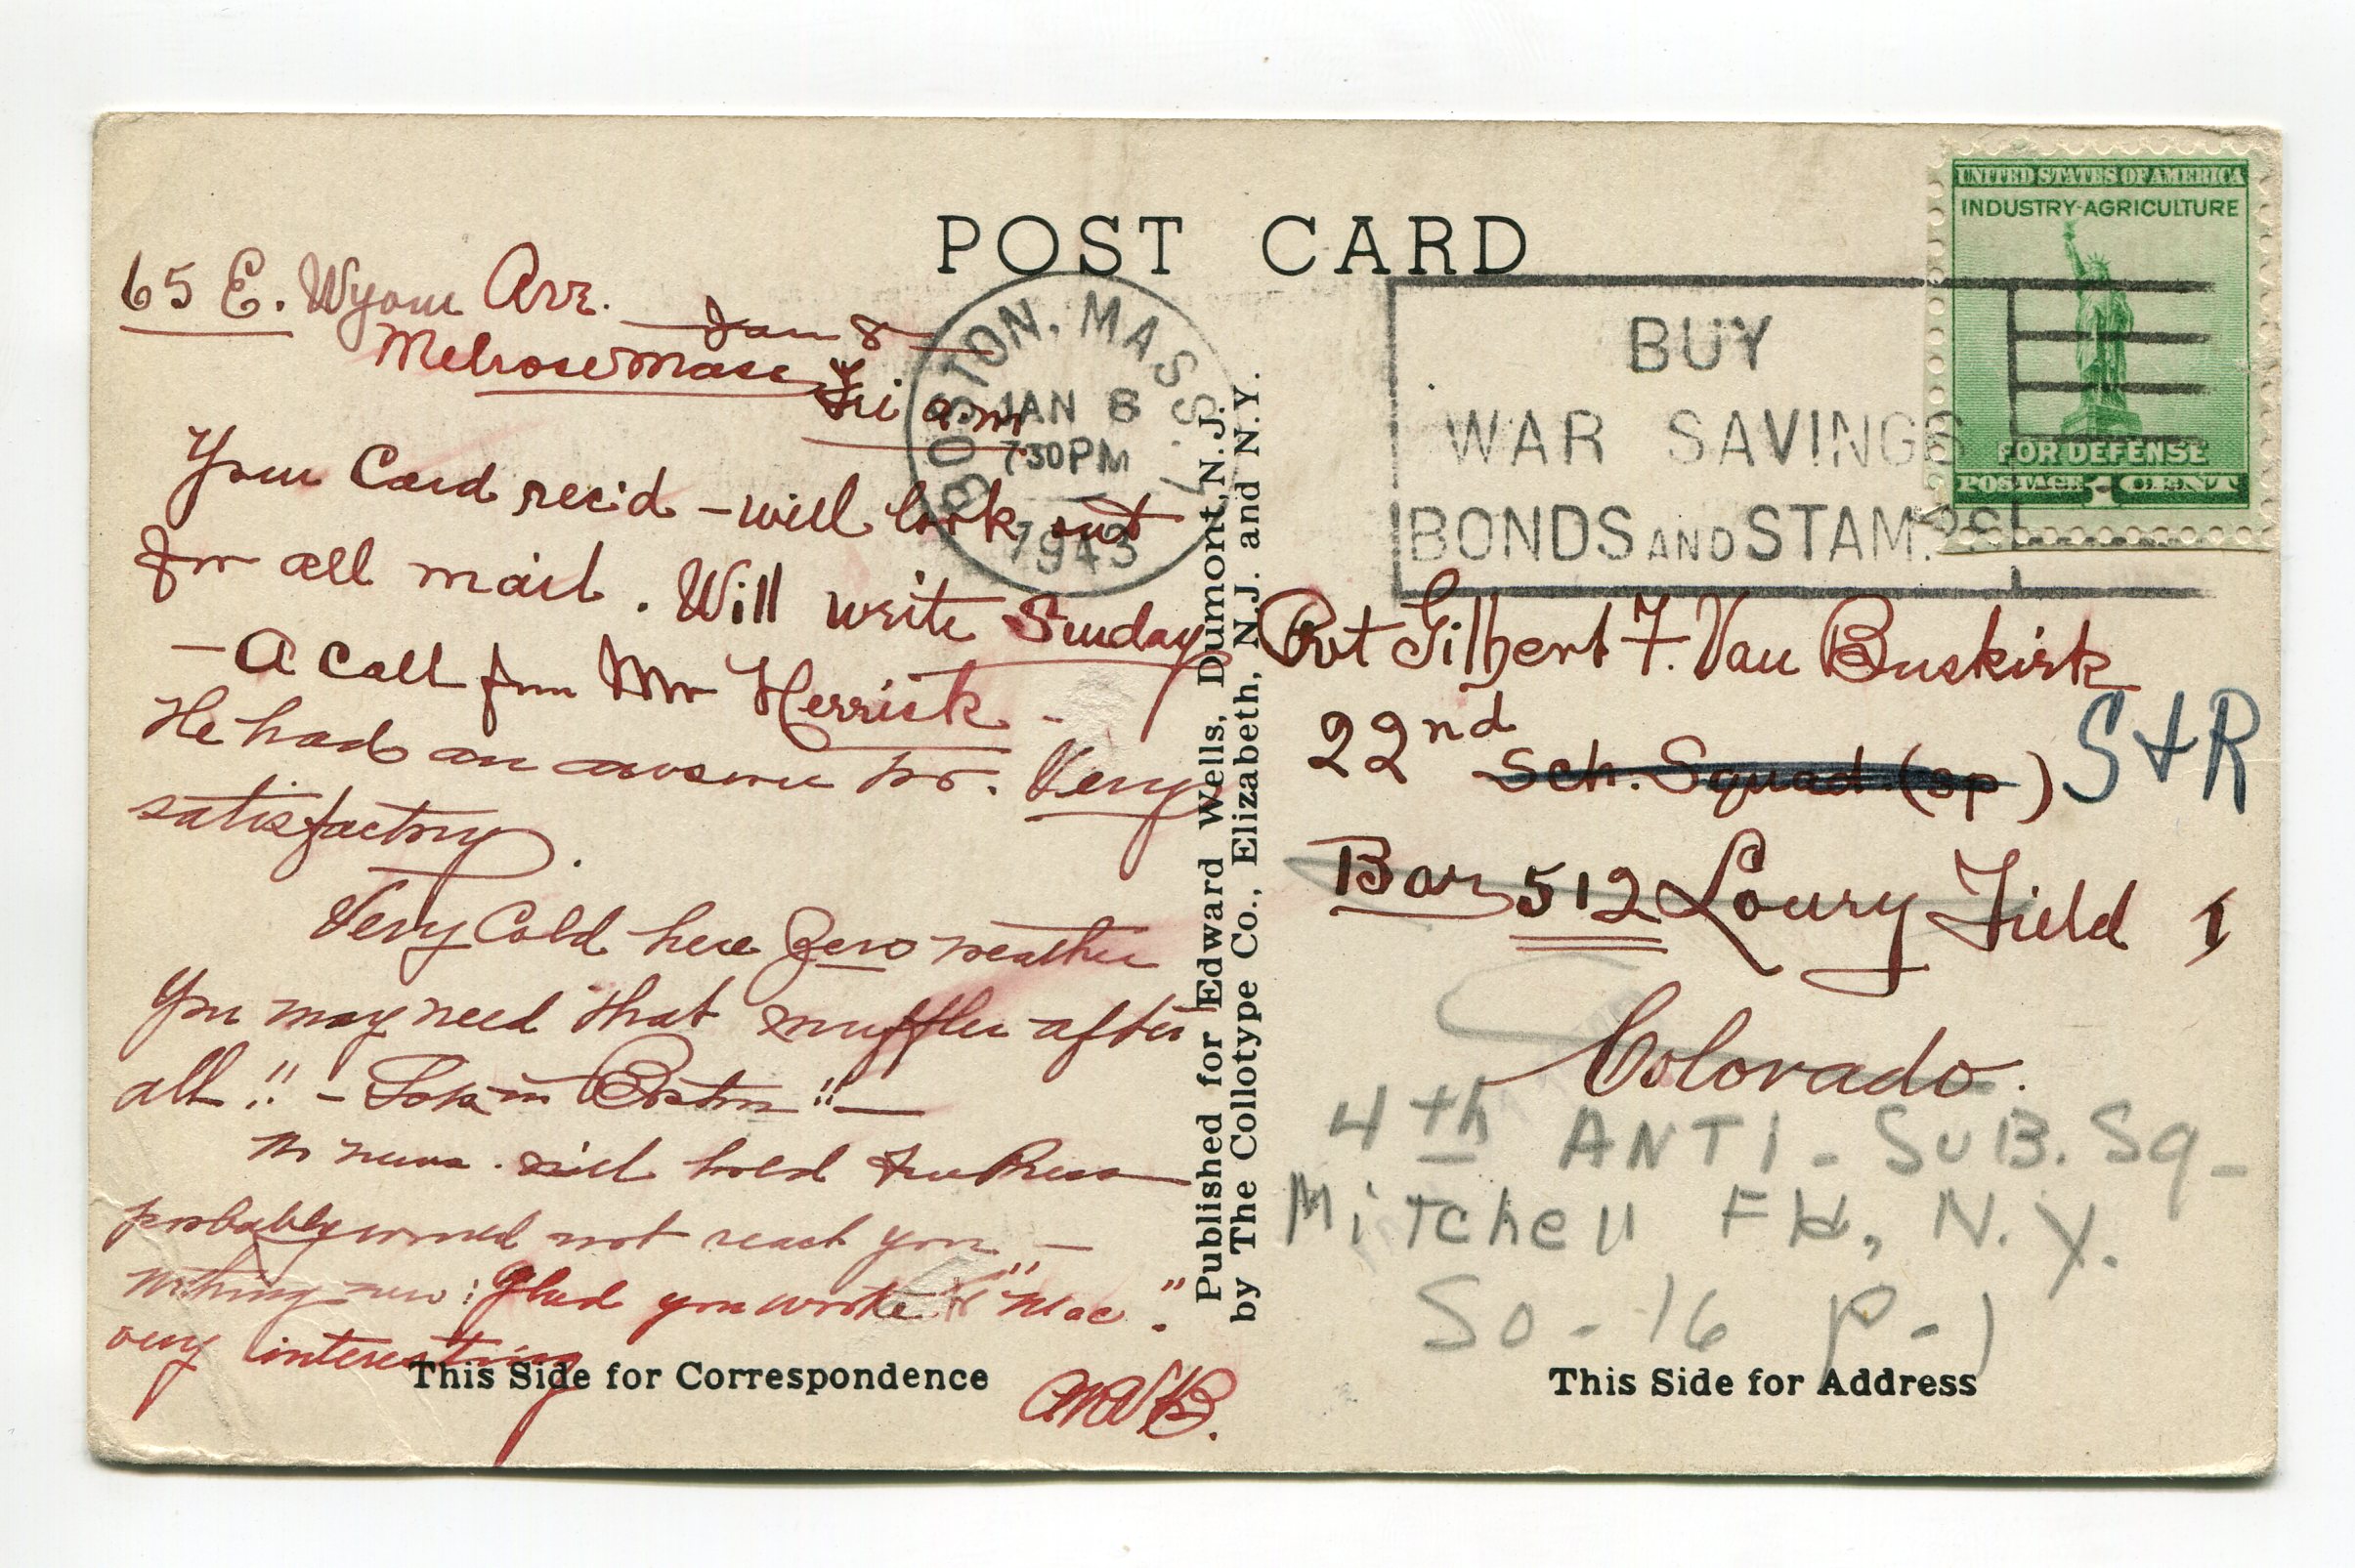 POST CARD
65 E. Wyom Ave.
Jan 8
Melrose Mass
Fri a.m
Your Card rec'd - will look out
for all mail. Will write Sunday
- A call from Mr Herrick -
He had an answer too. Very
satisfactory.
Very Cold here Zero weather
You may need that muffler after
all!! - in Boston!! -
No news. will hold Free Press
probably would not reach you -
nothing new: Glad you wrote "Mac".
very interesting
AMVB.
This Side for Correspondence
Published for Edward Wells, Dumont, N.J.
by The Collotype Co., Elizabeth, N.J. and N.Y.
BOSTON, MASS.
JAN 8
730PM
1943
BUY
WAR SAVINGS
BONDS AND STAMPS
UNITED STATES OF AMERICA
INDUSTRY·AGRICULTURE
FOR DEFENSE
POSTAGE 1 CENT
Pvt Gilbert F. Van Buskirk
22nd Sch. Squad (Sp) S+R
Bar 512 Lowry Field 1
Colorado.
4th ANTI-SUB. Sq-
Mitchell Fld, N.Y.
So-16 P-1
This Side for Address